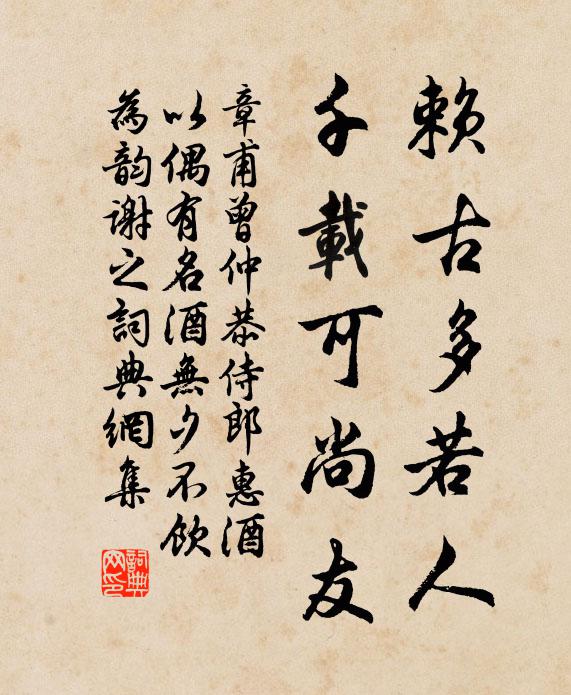 賴古多若人
千載可尚友
章甫曾仲恭侍郎惠酒
以偶有名酒無夕不飲
為韵謝之詞典網集
詞典网印